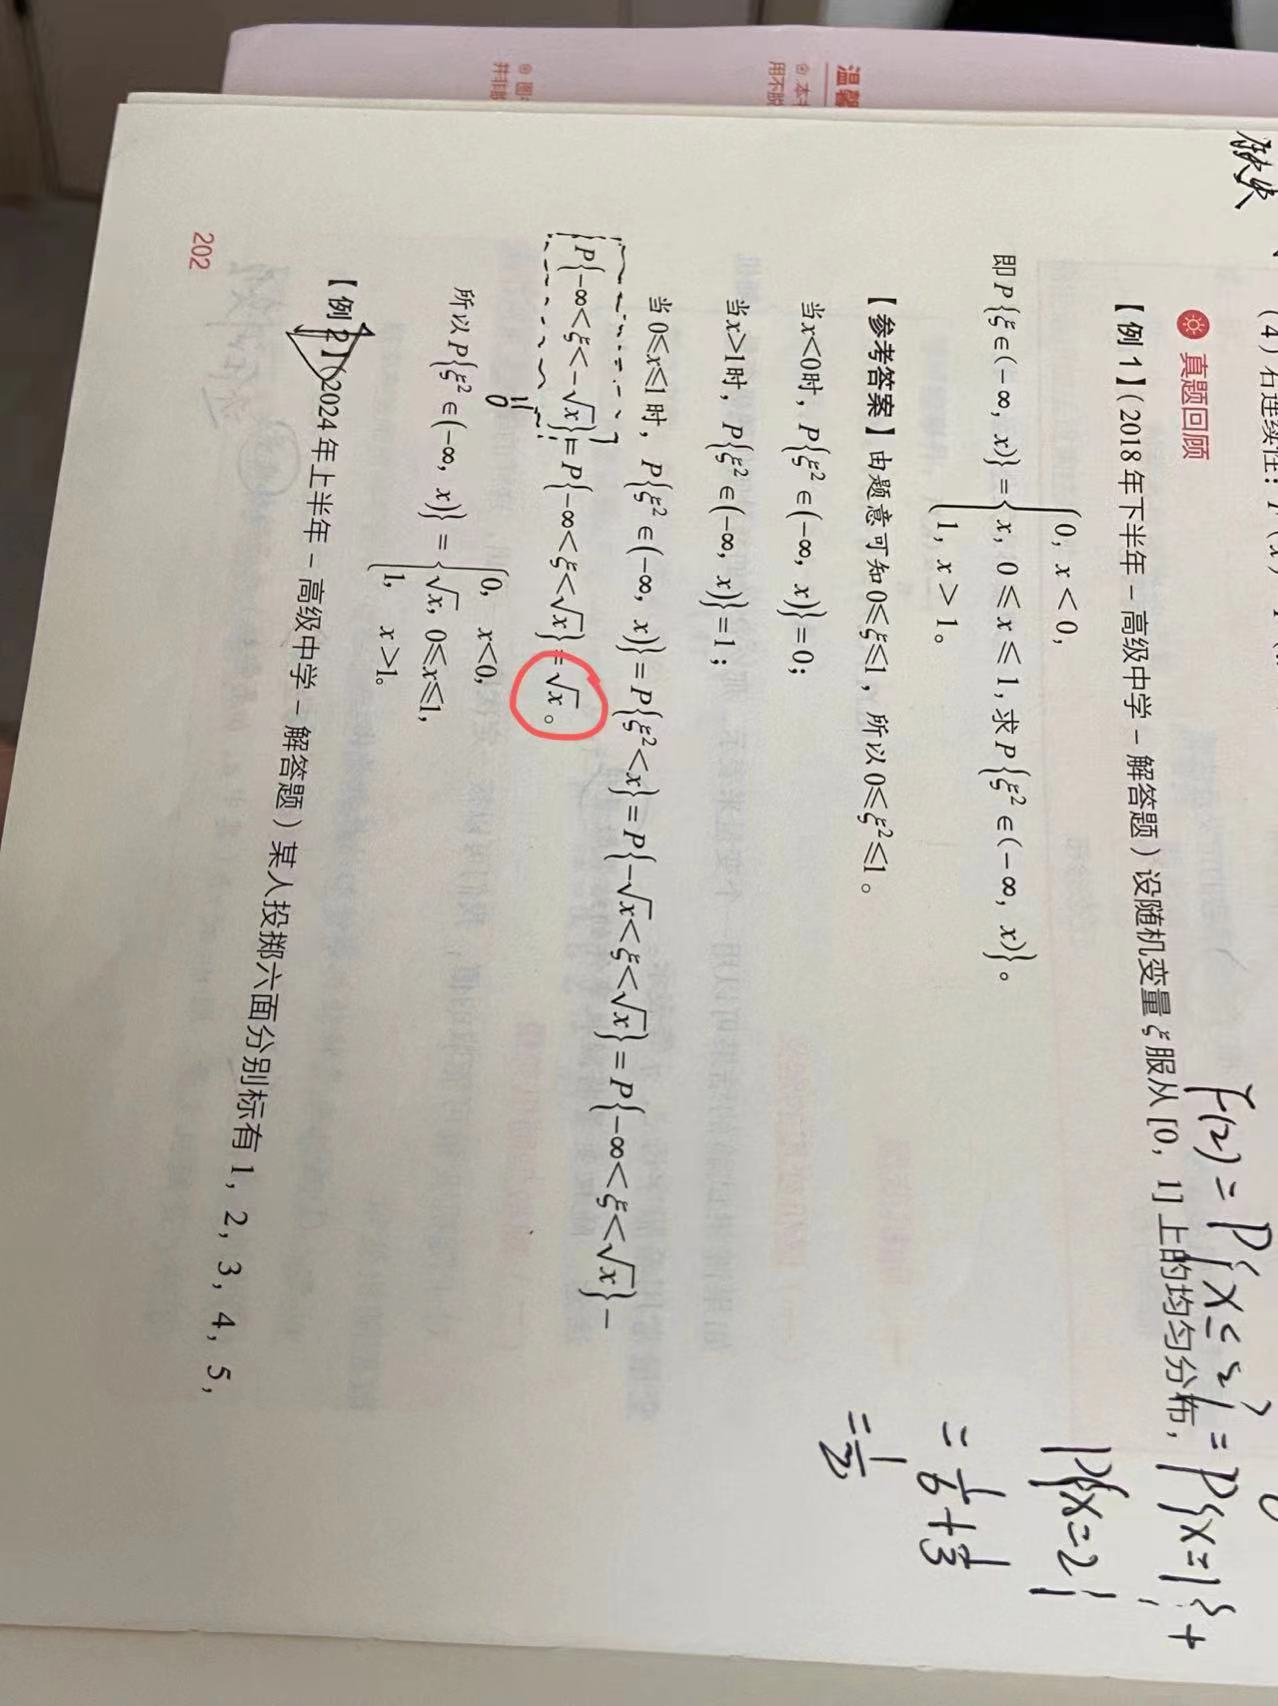 温馨
本书
用不脱
图
并非脱
缺失
（4）右连续性：
真题回顾
【例1】（2018年下半年－高级中学－解答题）设随机变量ξ服从[0，1]上的均匀分布，
即P{ξ∈(-∞，x)}={0，x<0，
x，0≤x≤1，求P{ξ²∈(-∞，x)}。
1，x>1。
【参考答案】由题意可知0≤ξ≤1，所以0≤ξ²≤1。
当x<0时，P{ξ²∈(-∞，x)}=0；
当x>1时，P{ξ²∈(-∞，x)}=1；
当0≤x≤1时，P{ξ²∈(-∞，x)}=P{ξ²<x}=P{-√x<ξ<√x}=P{-∞<ξ<√x}-
P{-∞<ξ<-√x}=P{-∞<ξ<√x}=√x。
=
0
所以P{ξ²∈(-∞，x)}={0，x<0，
√x，0≤x≤1，
1，x>1。
【例2】（2024年上半年－高级中学－解答题）某人投掷六面分别标有1，2，3，4，5，
202
F(2)=P{x≤2}=P{x=1}+
P{x=2}
=1/6+1/3
=1/2